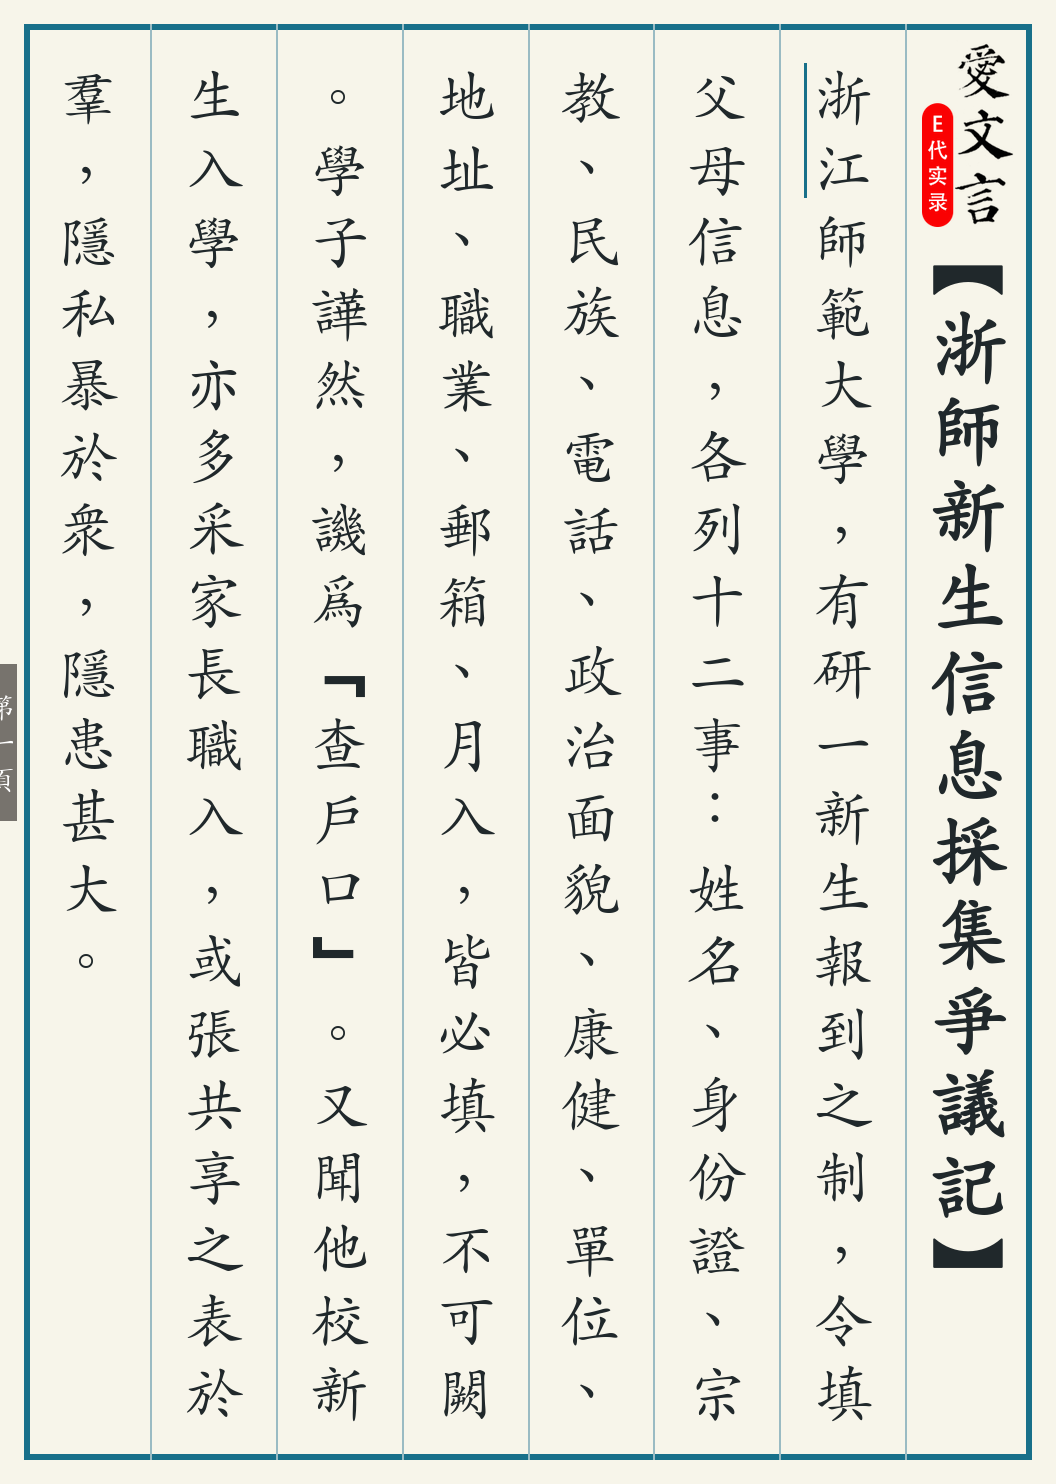 愛文言
E代实录
【浙師新生信息採集爭議記】
浙江師範大學，有研一新生報到之制，令填
父母信息，各列十二事：姓名、身份證、宗
教、民族、電話、政治面貌、康健、單位、
地址、職業、郵箱、月入，皆必填，不可闕
。學子譁然，譏爲『查戶口』。又聞他校新
生入學，亦多采家長職入，或張共享之表於
羣，隱私暴於衆，隱患甚大。
第一頁